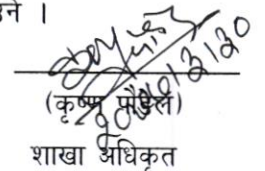 उने ।
(कृष्ण पौडेल)
शाखा अधिकृत